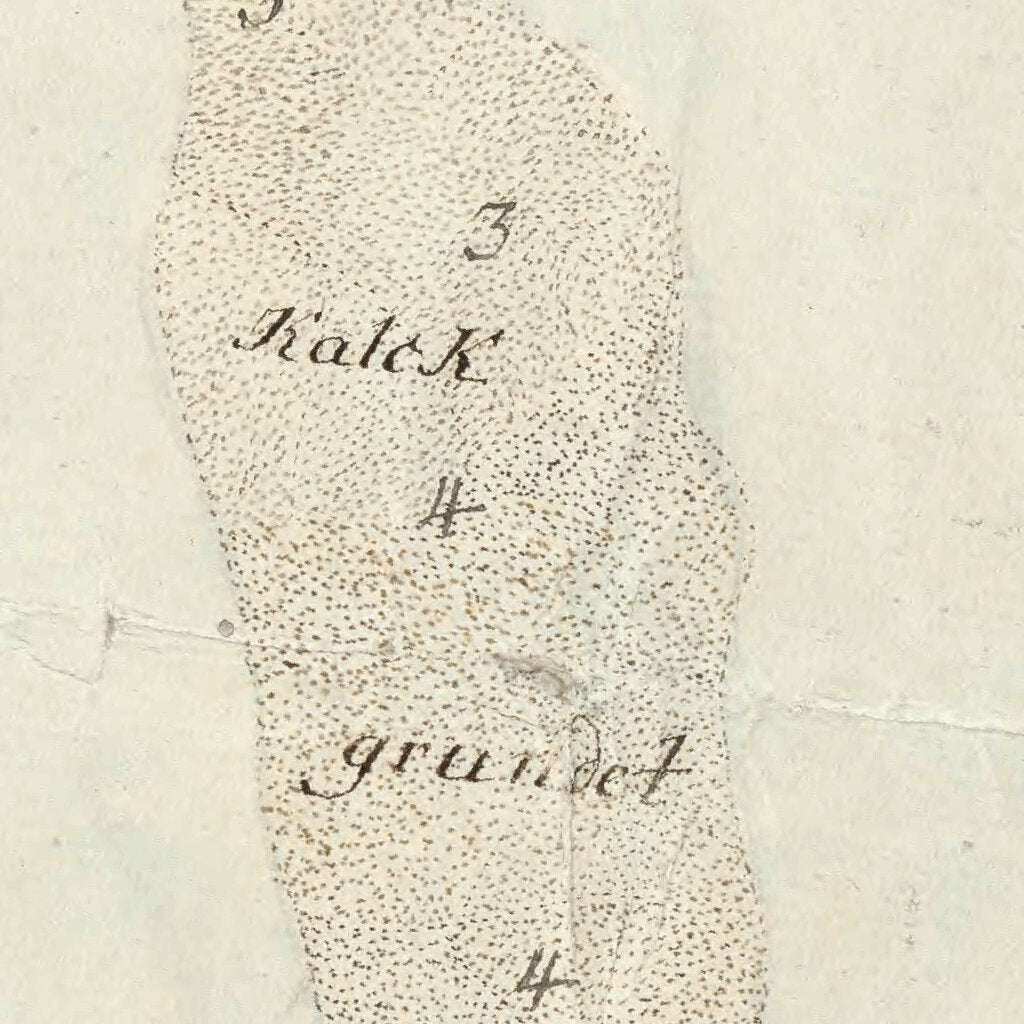 3
Kalck
4
grundet
4